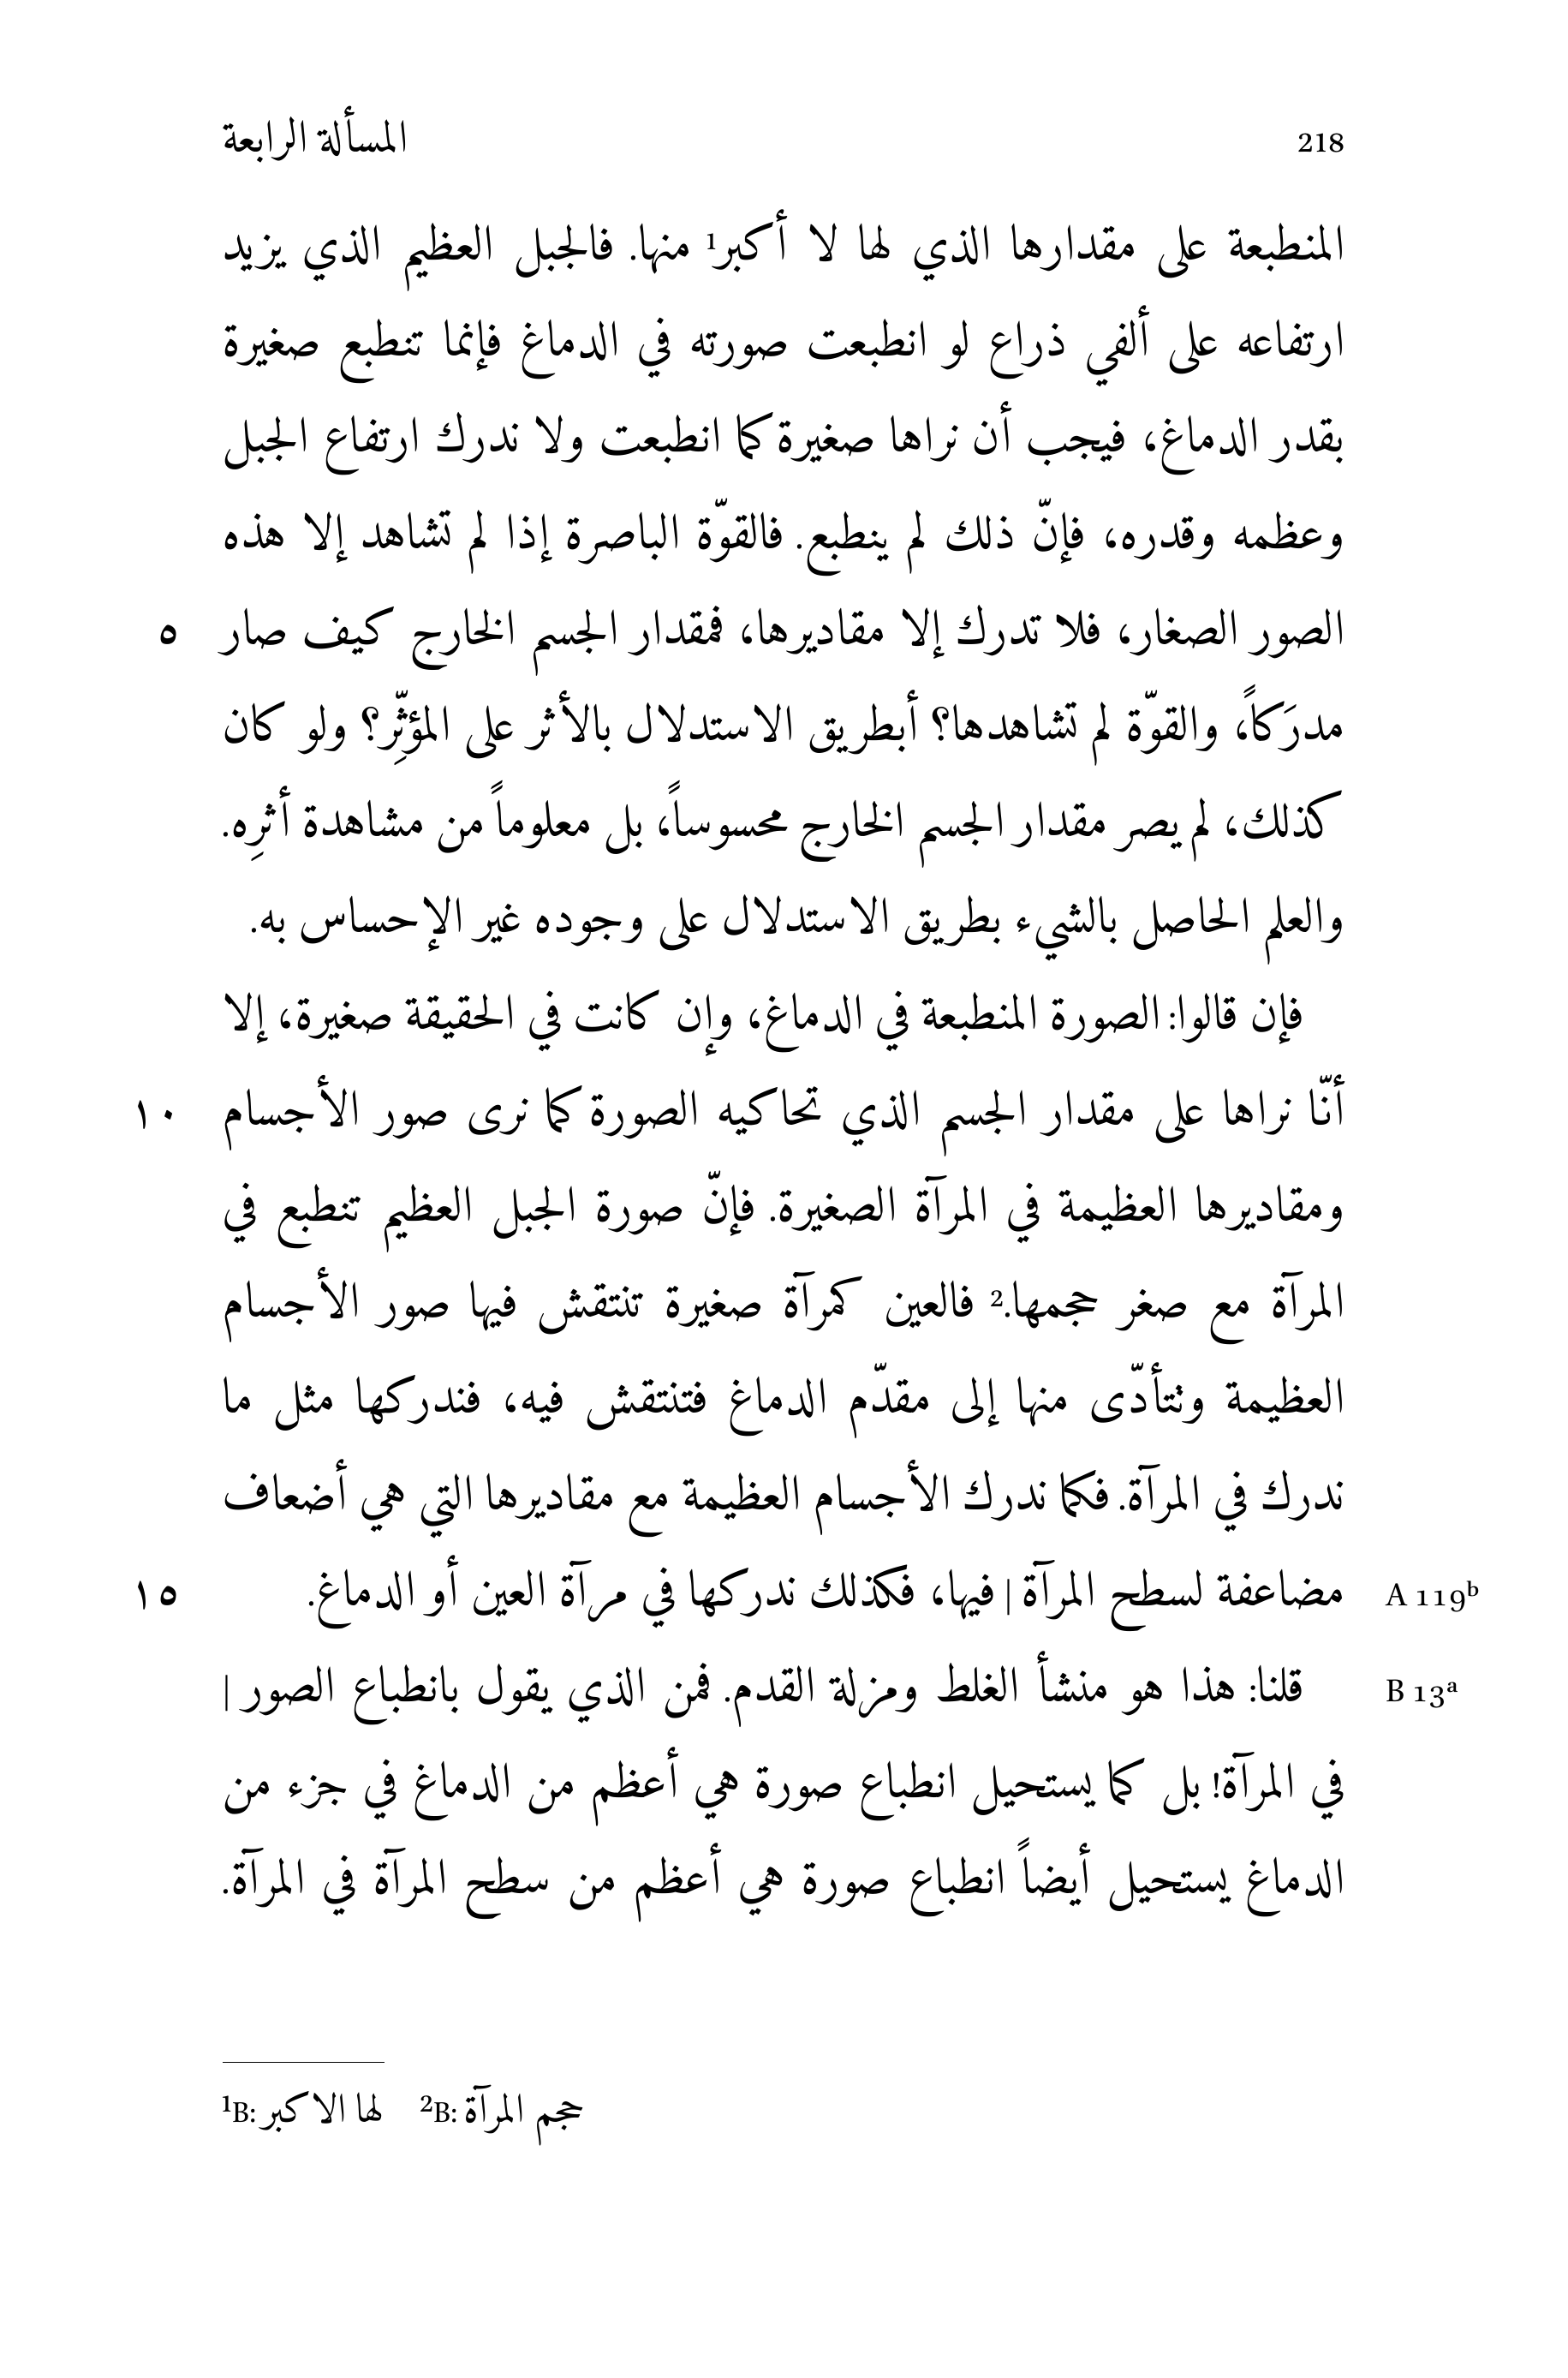 218 المسألة الرابعة
المنطبعة على مقدارها الذي لها لا أكبر¹ منها. فالجبل العظيم الذي يزيد
ارتفاعه على ألفي ذراع لو انطبعت صورته في الدماغ فإنما تنطبع صغيرة
بقدر الدماغ، فيجب أن نراها صغيرة كما انطبعت ولا ندرك ارتفاع الجبل
وعظمه وقدره، فإنّ ذلك لم ينطبع. فالقوّة الباصرة إذا لم تشاهد إلا هذه
الصور الصغار، فلا تدرك إلا مقاديرها، فمقدار الجسم الخارج كيف صار ٥
مدرَكاً، والقوّة لم تشاهدها؟ أبطريق الاستدلال بالأثر على المؤثِّر؟ ولو كان
كذلك، لم يصر مقدار الجسم الخارج محسوساً، بل معلوماً من مشاهدة أثرِه.
والعلم الحاصل بالشيء بطريق الاستدلال على وجوده غير الإحساس به.
فإن قالوا: الصورة المنطبعة في الدماغ، وإن كانت في الحقيقة صغيرة، إلا
أنّا نراها على مقدار الجسم الذي تحاكيه الصورة كما نرى صور الأجسام ١٠
ومقاديرها العظيمة في المرآة الصغيرة. فإنّ صورة الجبل العظيم تنطبع في
المرآة مع صغر حجمها.² فالعين كمرآة صغيرة تنتقش فيها صور الأجسام
العظيمة وتتأدّى منها إلى مقدّم الدماغ فتنتقش فيه، فندركها مثل ما
ندرك في المرآة. فكما ندرك الأجسام العظيمة مع مقاديرها التي هي أضعاف
A 119ᵇ مضاعفة لسطح المرآة | فيها، فكذلك ندركها في مرآة العين أو الدماغ. ١٥
B 13ᵃ قلنا: هذا هو منشأ الغلط ومزلة القدم. فمن الذي يقول بانطباع الصور |
في المرآة! بل كما يستحيل انطباع صورة هي أعظم من الدماغ في جزء من
الدماغ يستحيل أيضاً انطباع صورة هي أعظم من سطح المرآة في المرآة.
¹B: لها الاكبر ²B: حجم المرآة